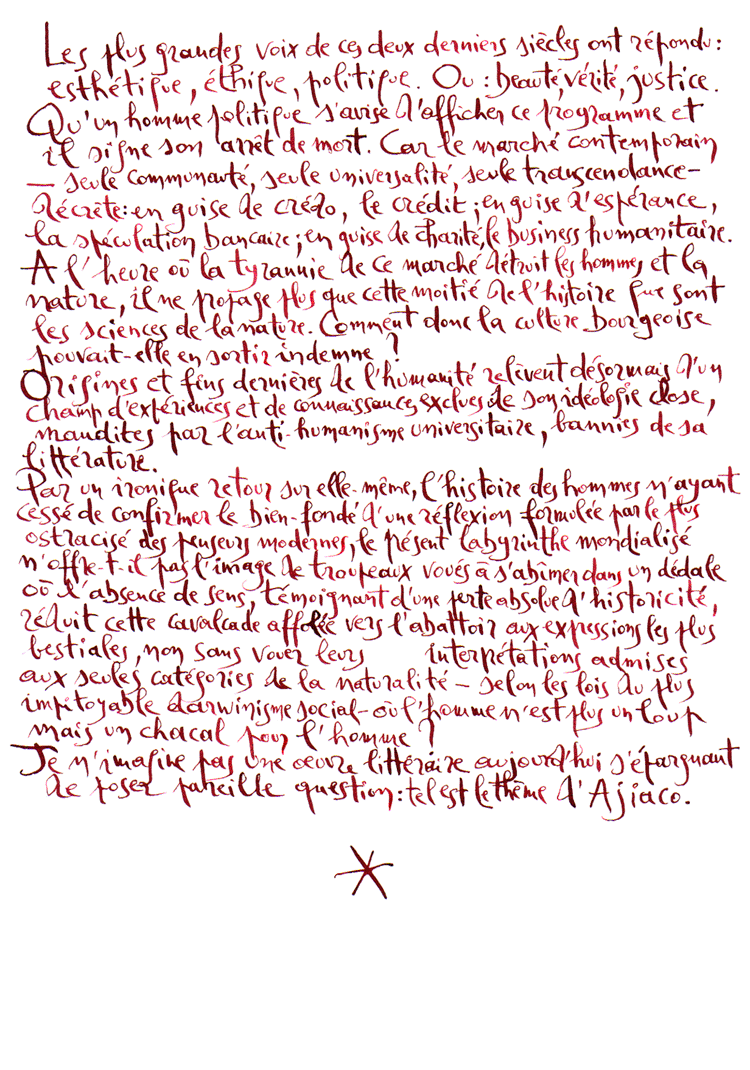 Les plus grandes voix de ces deux derniers siècles ont répondu :
esthétique, éthique, politique. Ou : beauté, vérité, justice.
Qu'un homme politique s'avise d'afficher ce programme et
il signe son arrêt de mort. Car le marché contemporain
— seule communauté, seule universalité, seule transcendance –
décrète : en guise de crédo, le crédit ; en guise d'espérance,
la spéculation bancaire ; en guise de charité, le business humanitaire.
A l'heure où la tyrannie de ce marché détruit les hommes et la
nature, il ne propage plus que cette moitié de l'histoire que sont
les sciences de la nature. Comment donc la culture bourgeoise
pouvait-elle en sortir indemne ?
Origines et fins dernières de l'humanité relèvent désormais d'un
champ d'expériences et de connaissances exclues de son idéologie close,
maudites par l'anti-humanisme universitaire, bannies de sa
littérature.
Par un ironique retour sur elle-même, l'histoire des hommes n'ayant
cessé de confirmer le bien-fondé d'une réflexion formulée par le plus
ostracisé des penseurs modernes, le présent labyrinthe mondialisé
n'offre-t-il pas l'image de troupeaux voués à s'abîmer dans un dédale
où l'absence de sens, témoignant d'une perte absolue d'historicité,
réduit cette cavalcade affolée vers l'abattoir aux expressions les plus
bestiales, non sans vouer leurs interprétations admises
aux seules catégories de la naturalité – selon les lois du plus
impitoyable darwinisme social – où l'homme n'est plus un loup
mais un chacal pour l'homme ?
Je n'imagine pas une œuvre littéraire aujourd'hui s'épargnant
de poser pareille question : tel est le thème d'Ajiaco.